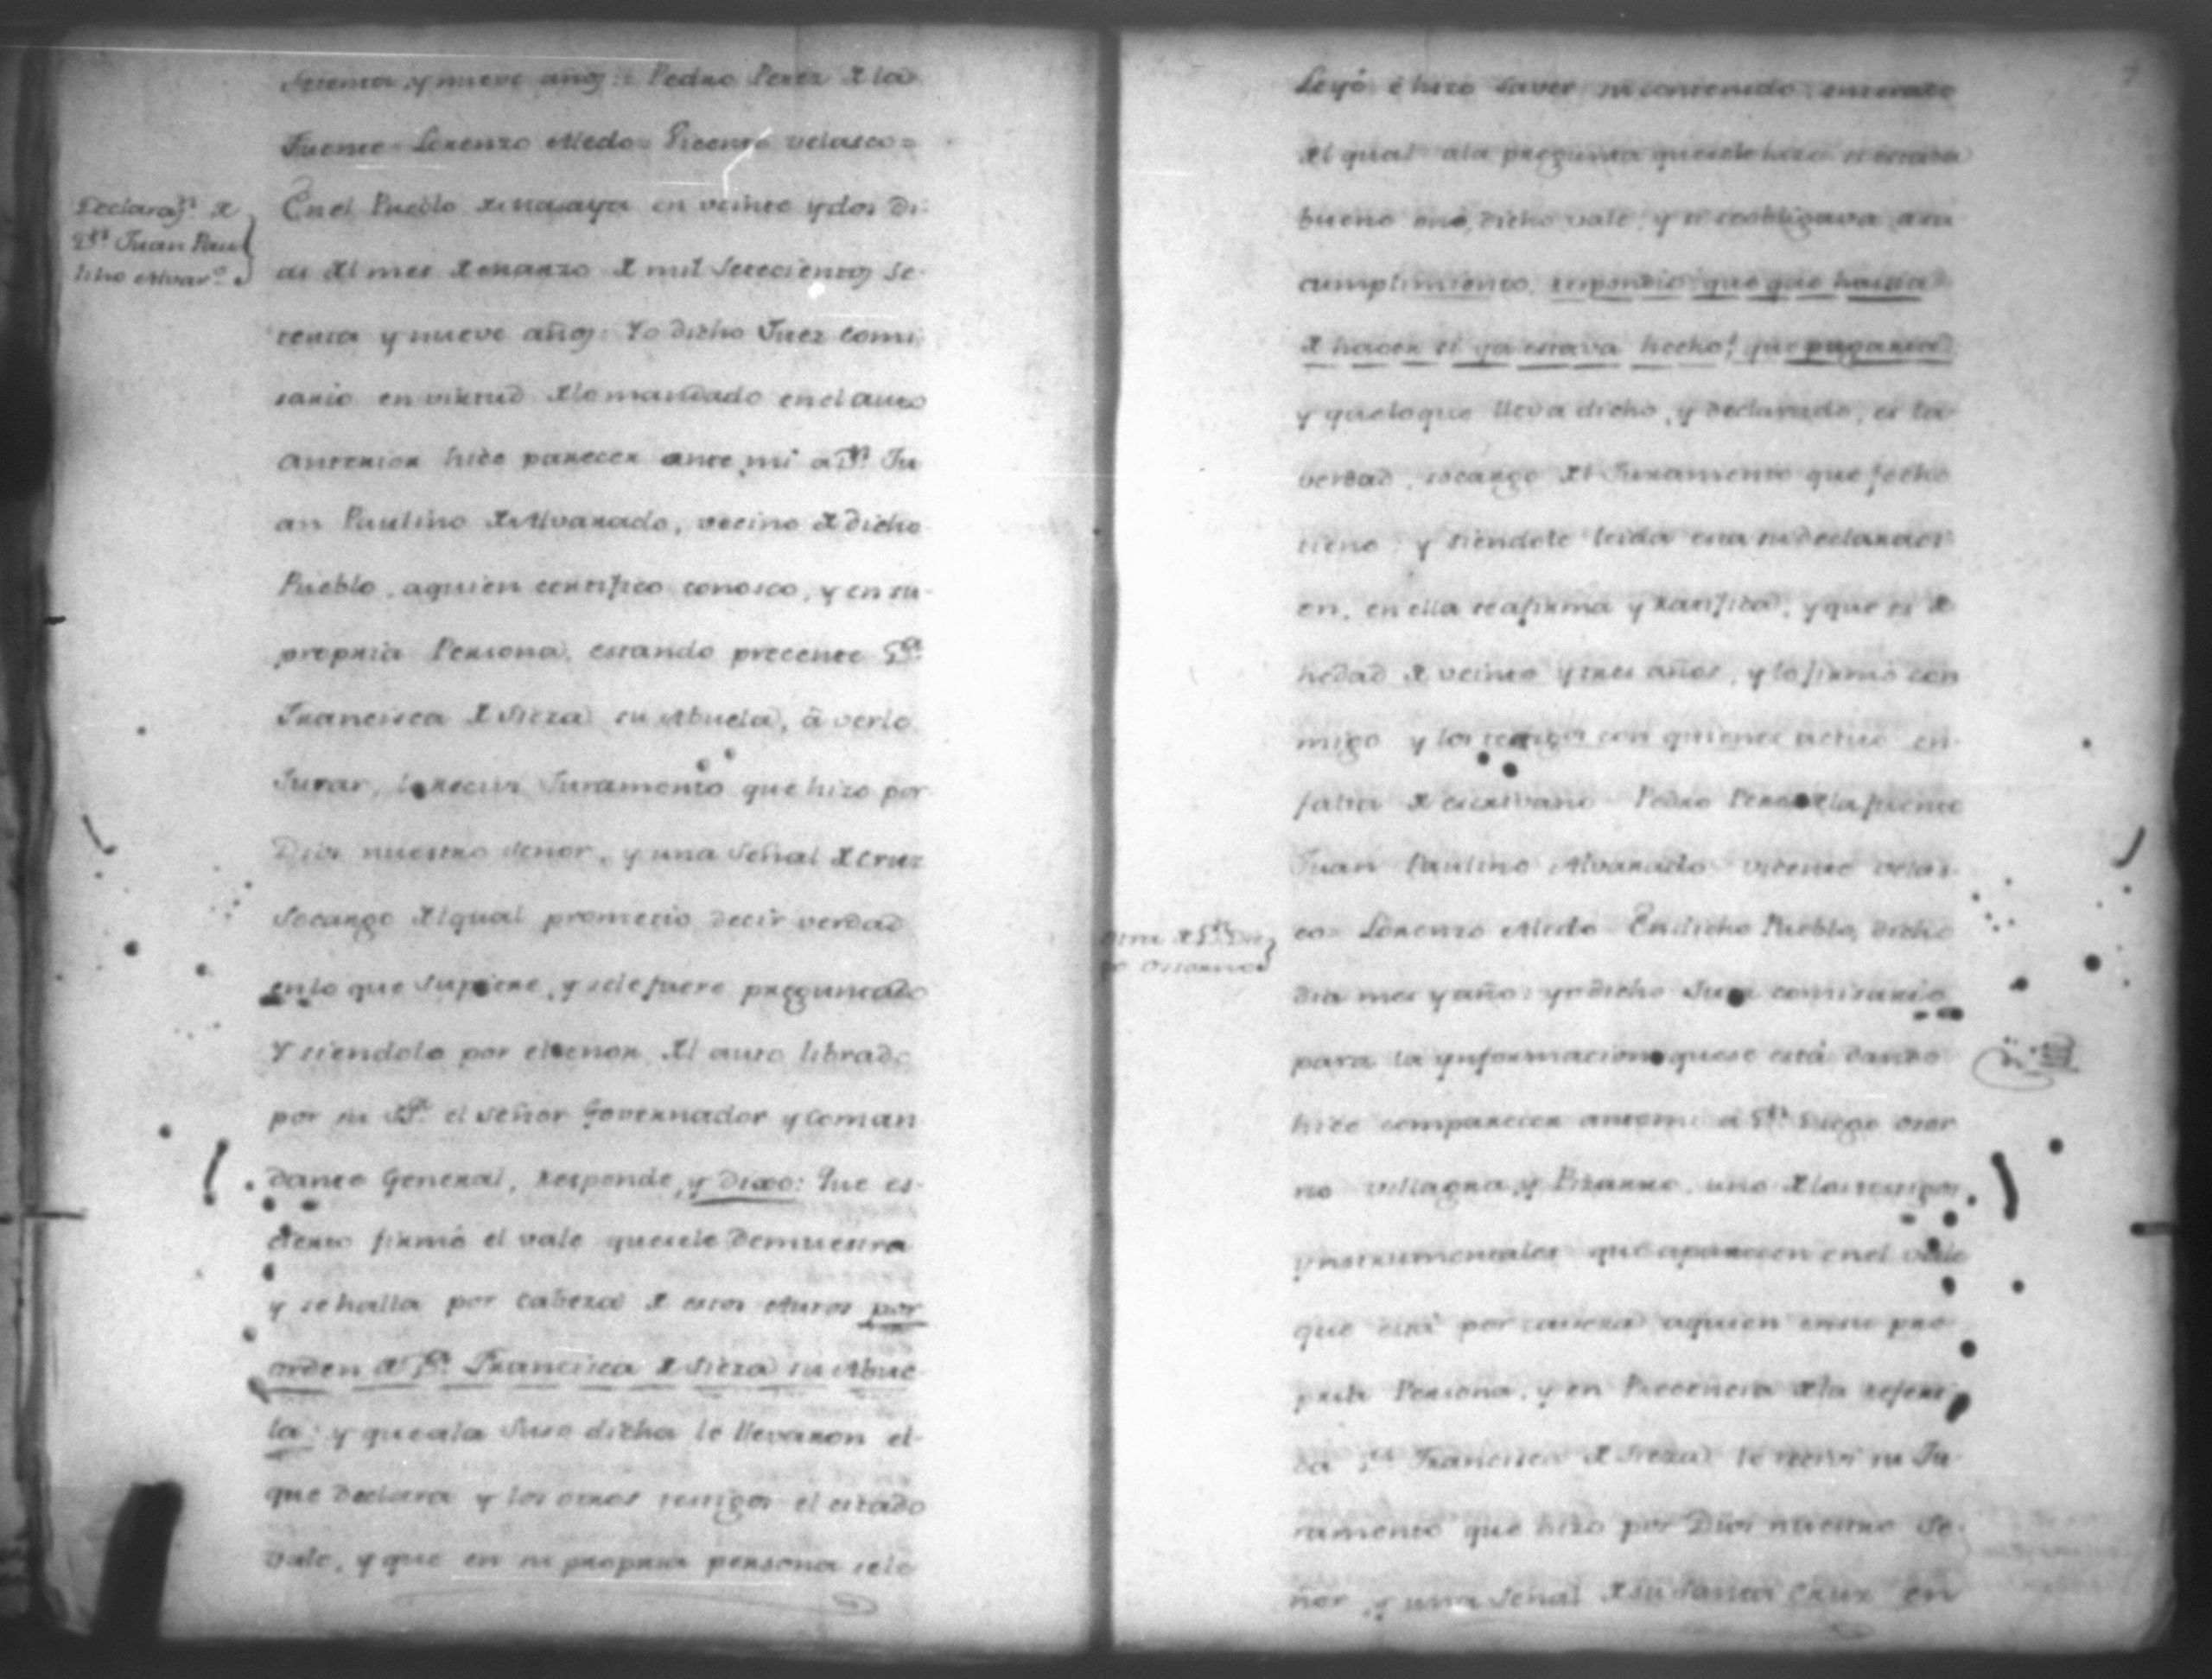 Setenta, y nueve años: = Pedro Perez de la
Fuente = Lorenzo Aledo = Vicente velasco =
Declaraz.n de
D.n Juan Pau
lino Alvar.o
En el Pueblo de masaya en veinte y dos di-
as del mes de marzo de mil setecientos se-
tenta y nueve años: Yo dicho Juez Comi-
sario en virtud de lo mandado en el auto
anterior hice parecer ante mi a D.n Ju
an Paulino de Alvarado, vecino de dicho
Pueblo, aquien certifico conosco, y en su-
propria Persona, estando precente D.a
Francisca de Sieza su Abuela, â verlo
Jurar, le recivi Juramento que hizo por
Dios nuestro Señor, y una Señal de Cruz
Socargo del qual prometio decir verdad
en lo que Supiere, y se le fuere preguntado
Y siendolo por el tenor del auto librado
por su S.a el Señor Governador y Coman
dante General, responde, y dixo: Que es-
cierto firmó el vale que se le demuestra
y se halla por cabeza de estos Autos por
orden de D.a Francisca de Sieza su Abue-
la: y que a la Suso dicha le llevaron el-
que declara y los otros testigos el citado
vale, y que en su propria persona se le
Leyó é hizo saver su contenido, enterado
del qual a la pregunta que se le hizo si estava
bueno dicho vale, y si se obligava a su
cumplimiento, respondio que que havia
de hacer si ya estava hecho! que pagaria
y que lo que lleva dicho, y declarado, es la
verdad, socargo del Juramento que fecho
tiene, y siendole leida esta su declaraci
on, en ella se afirma y ratifica, y que es de
hedad de veinte y tres años, y lo firmó con
migo y los testigos con quienes actuo en-
falta de escrivano Pedro Perez de la fuente
Juan Paulino Alvarado Vicente velas-
co = Lorenzo Aledo = En dicho Pueblo, dicho
Otra de D.n Die
go Ossorno
dia mes y año: yo dicho Juez comisario
para la ynformacion que se está dando
hice comparecer ante mi a D.n Diego Osor
no Villagra, y Pizarro, uno de los testigos
ynstrumentales que aparecen en el vale
que está por caveza aquien en su pro-
pria Persona, y en Precencia de la referi
da D.a Francisca de Sieza le recivi su Ju-
ramento que hizo por Dios nuestro Se-
ñor, y una Señal de su Santa Cruz en